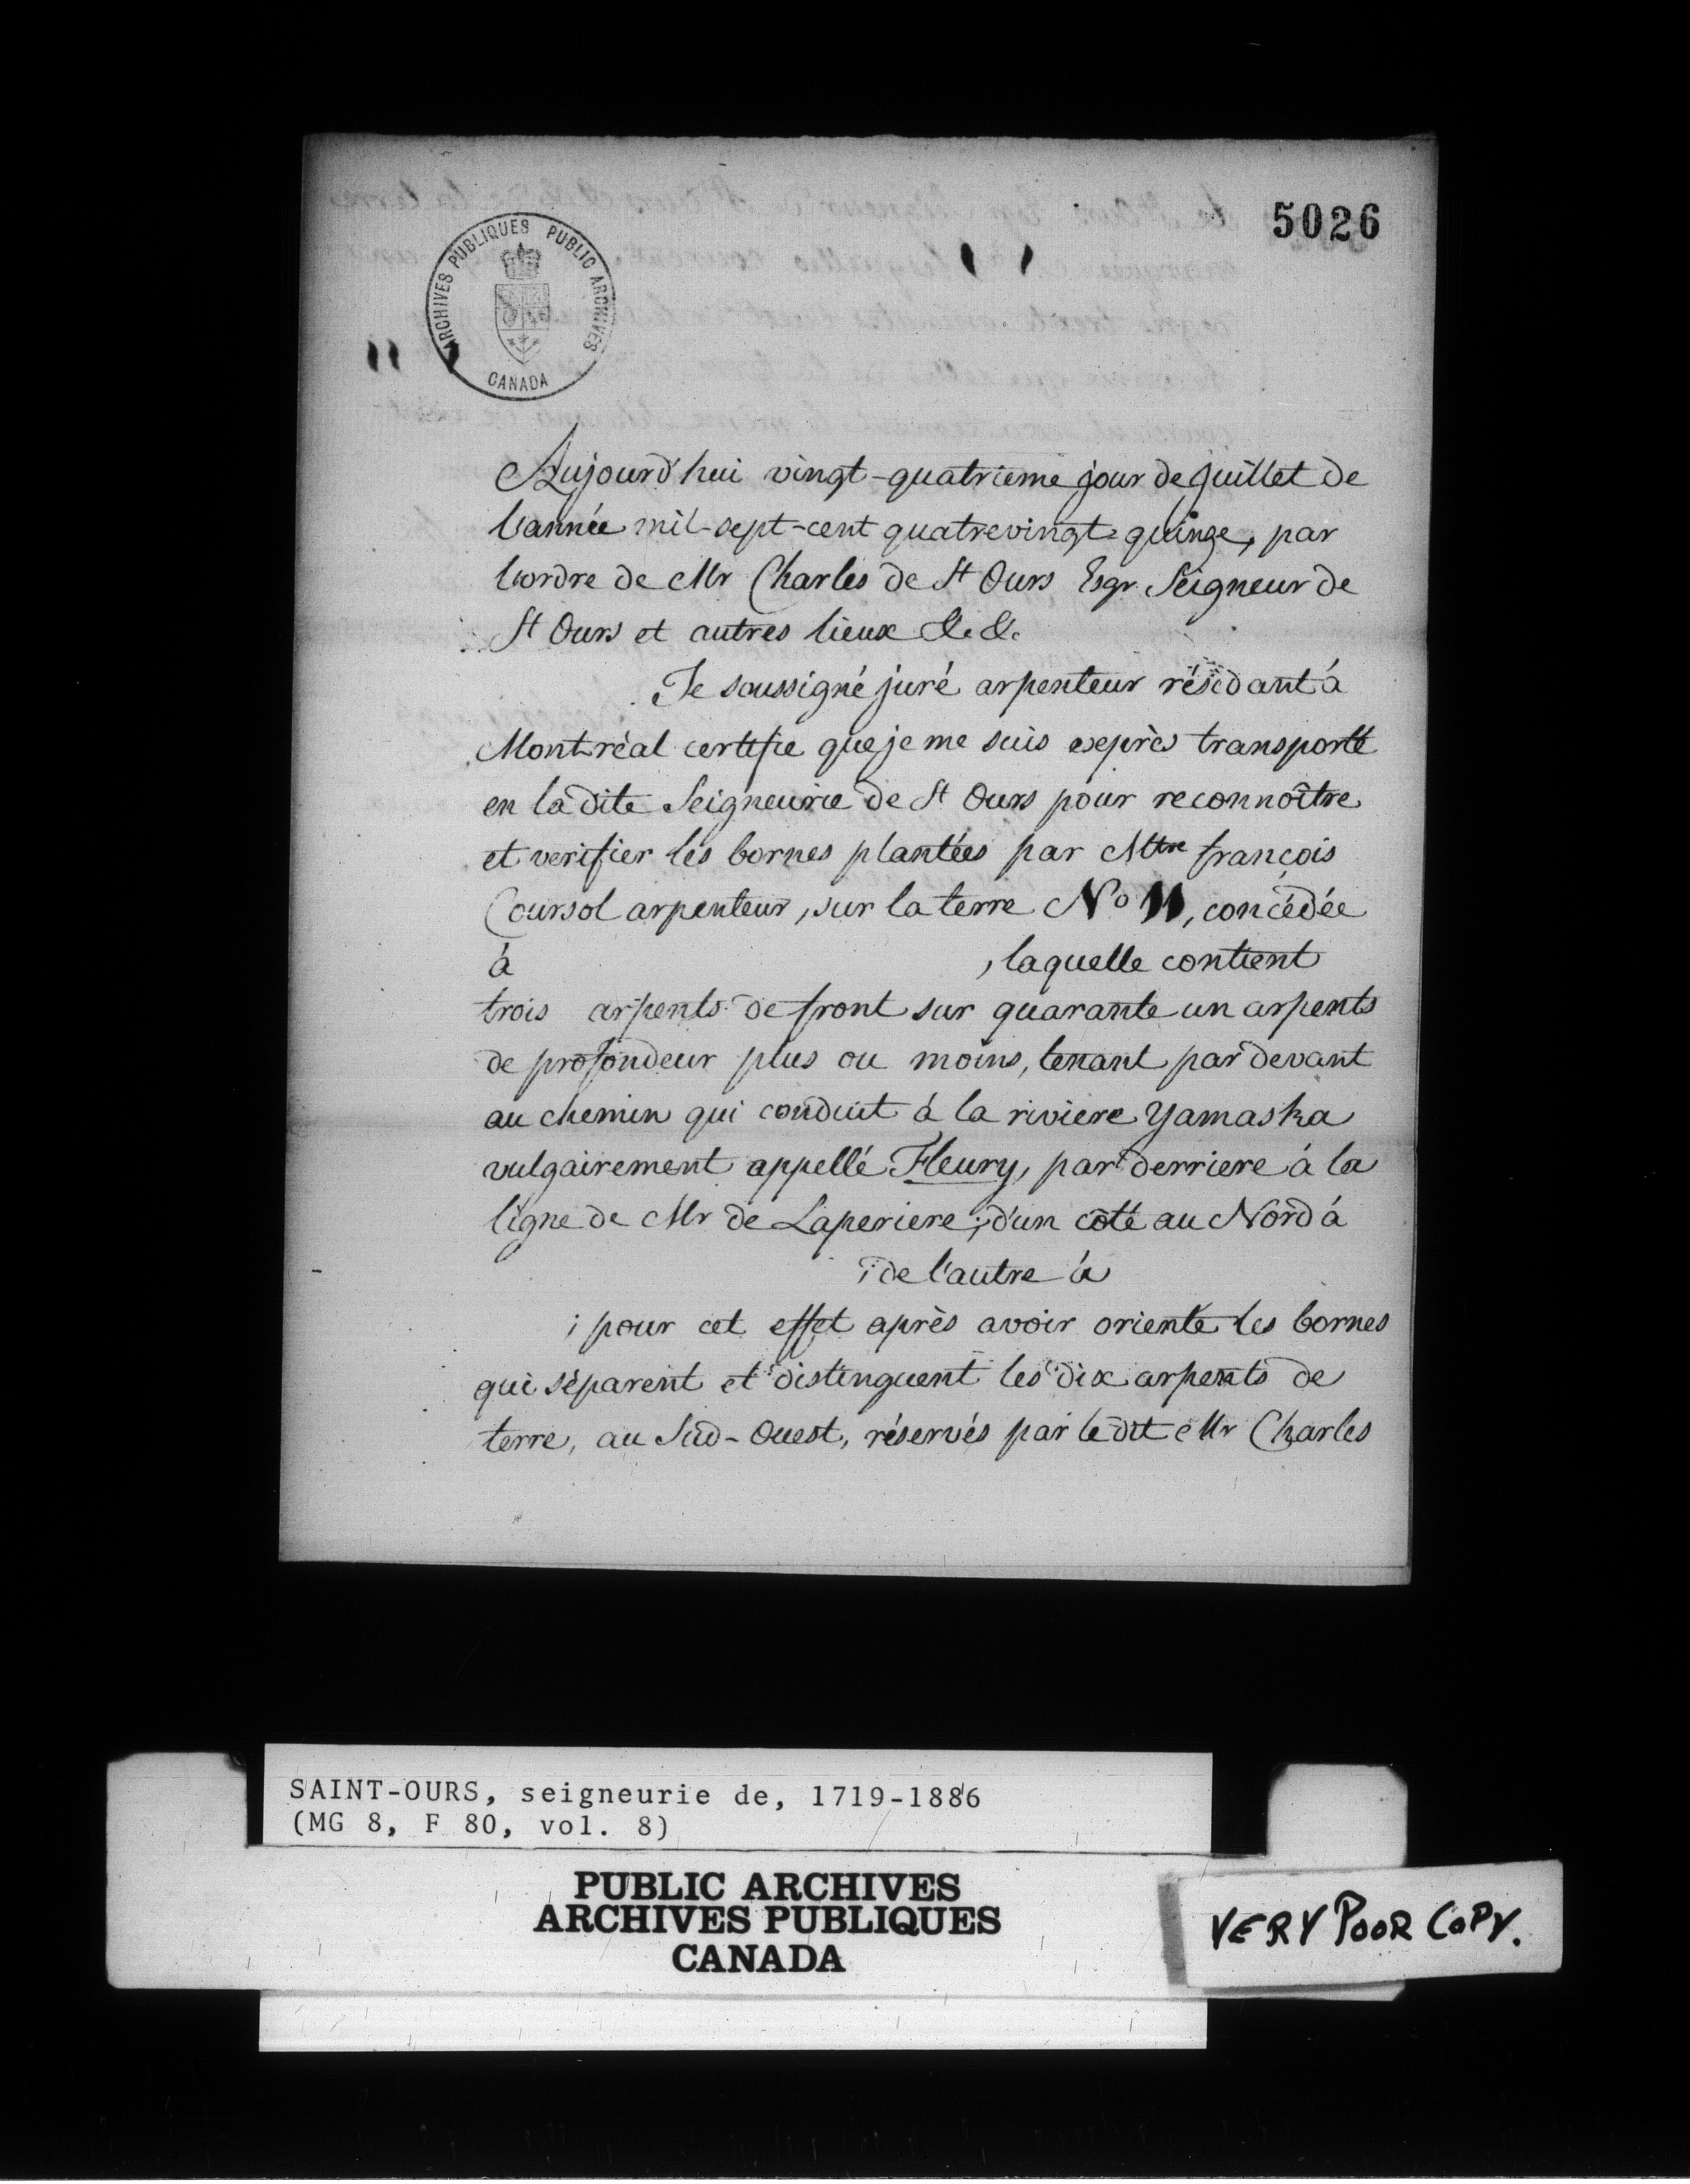 5026
ARCHIVES PUBLIQUES PUBLIC ARCHIVES
CANADA
11
Aujourd'hui vingt-quatrieme jour de Juillet de
l'année mil-sept-cent quatrevingt-quinze, par
l'ordre de Mr Charles de St Ours Esqr Seigneur de
St Ours et autres lieux &c. &c.
Je soussigné juré arpenteur résidant à
Montréal certifie que je me suis exprès transporté
en la dite Seigneurie de St Ours pour reconnoître
et verifier les bornes plantées par Mtre françois
Coursol arpenteur, sur la terre No 11, concédée
à , laquelle contient
trois arpents de front sur quarante un arpents
de profondeur plus ou moins, tenant par devant
au chemin qui conduit à la riviere Yamaska
vulgairement appellé Fleury, par derriere à la
ligne de Mr de Laperiere; d'un côté au Nord à
; de l'autre à
; pour cet effet après avoir orienté les bornes
qui séparent et distinguent les dix arpents de
terre, au Sud-Ouest, réservés par le dit Mr Charles
SAINT-OURS, seigneurie de, 1719-1886
(MG 8, F 80, vol. 8)
PUBLIC ARCHIVES
ARCHIVES PUBLIQUES
CANADA
VERY POOR COPY.